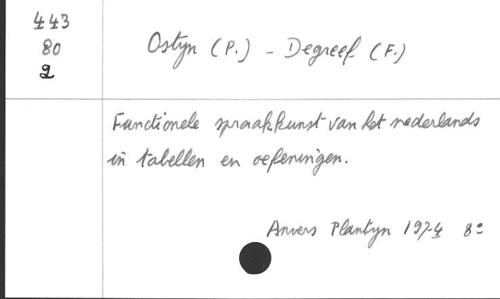 443
80
2
Ostyn (P.) - Degreef (F.)
Functionele spraakkunst van het nederlands
in tabellen en oefeningen.
Anvers Plantyn 1974 8°